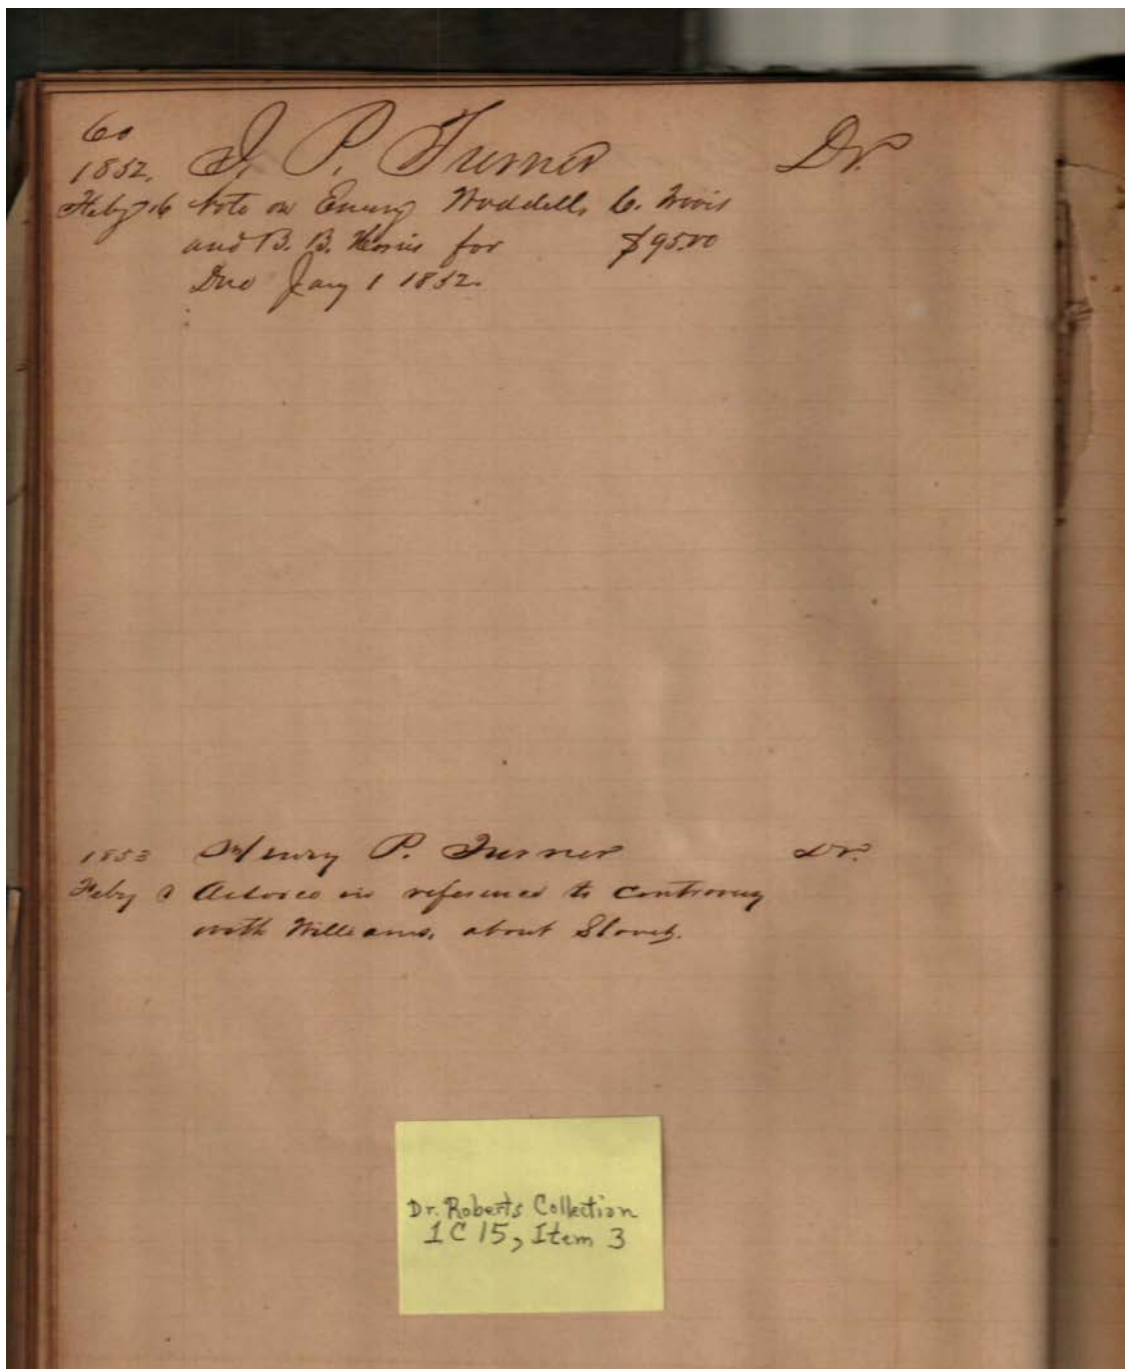 60
1852. J. P. Turner Dr.
Feby 16 Note on Emery Waddell,
and B. B. Harris for $95.00
Due Jany 1 1852.
1853 Henry P. Turner Dr.
Feby Advice in reference to controversy
with Williams, about Slaves.
Dr. Roberts Collection
1C15, Item 3